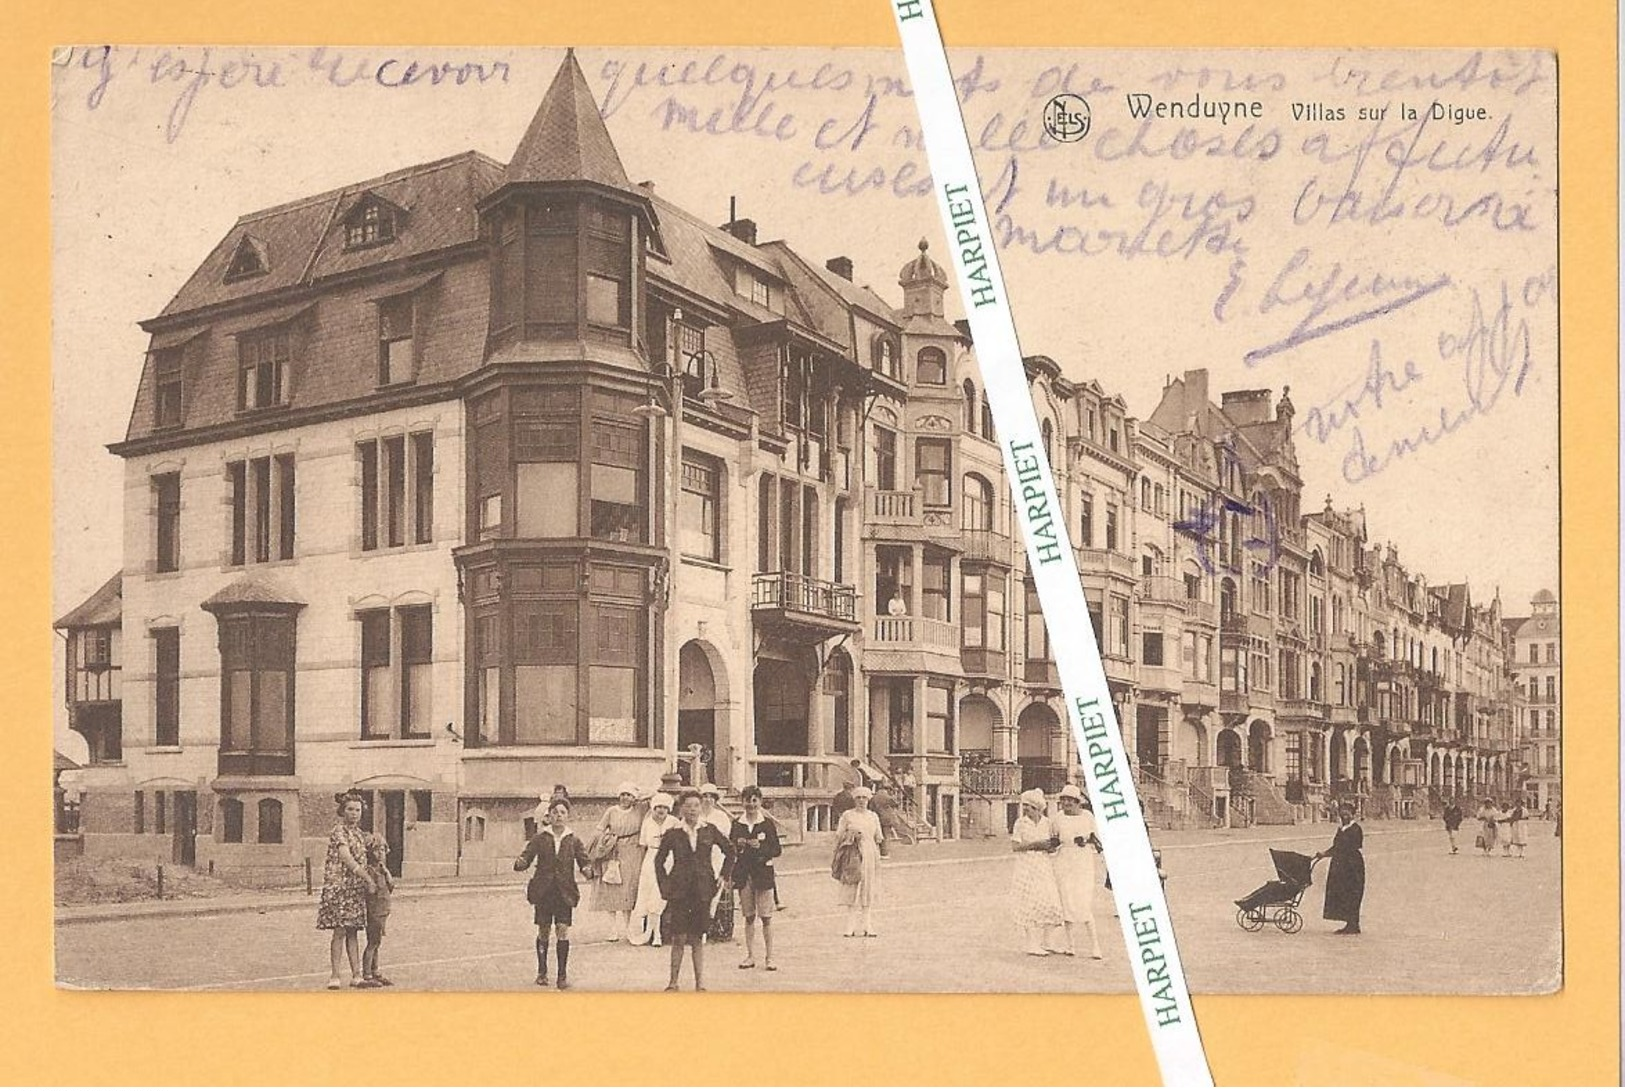 J'espère recevoir quelques mots de vous bientôt
mille et mille choses affectu
euses et un gros baiser
E Lejeune
votre
NELS
Wenduyne Villas sur la Digue.
H
HARPIET
HARPIET
HARPIET
HARPIET